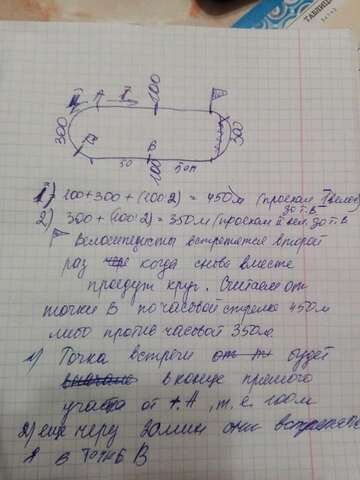 ТАБЛИЦ
II A I 100
300 300
B
50 100 50м
1) 100+300+(100:2) = 450м (проехал I велос. до т.В
2) 300+(100:2) = 350м (проехал II вел. до т.В
Велосипедисты встретятся второй
раз когда снова вместе
проедут круг. Считаем от
точки В по часовой стрелке 450м
либо против часовой 350м.
1) Точка встречи будет
в конце прямого
участка от т.А, т.е. 100м
2) еще через 20мин они встретятся
в точке В